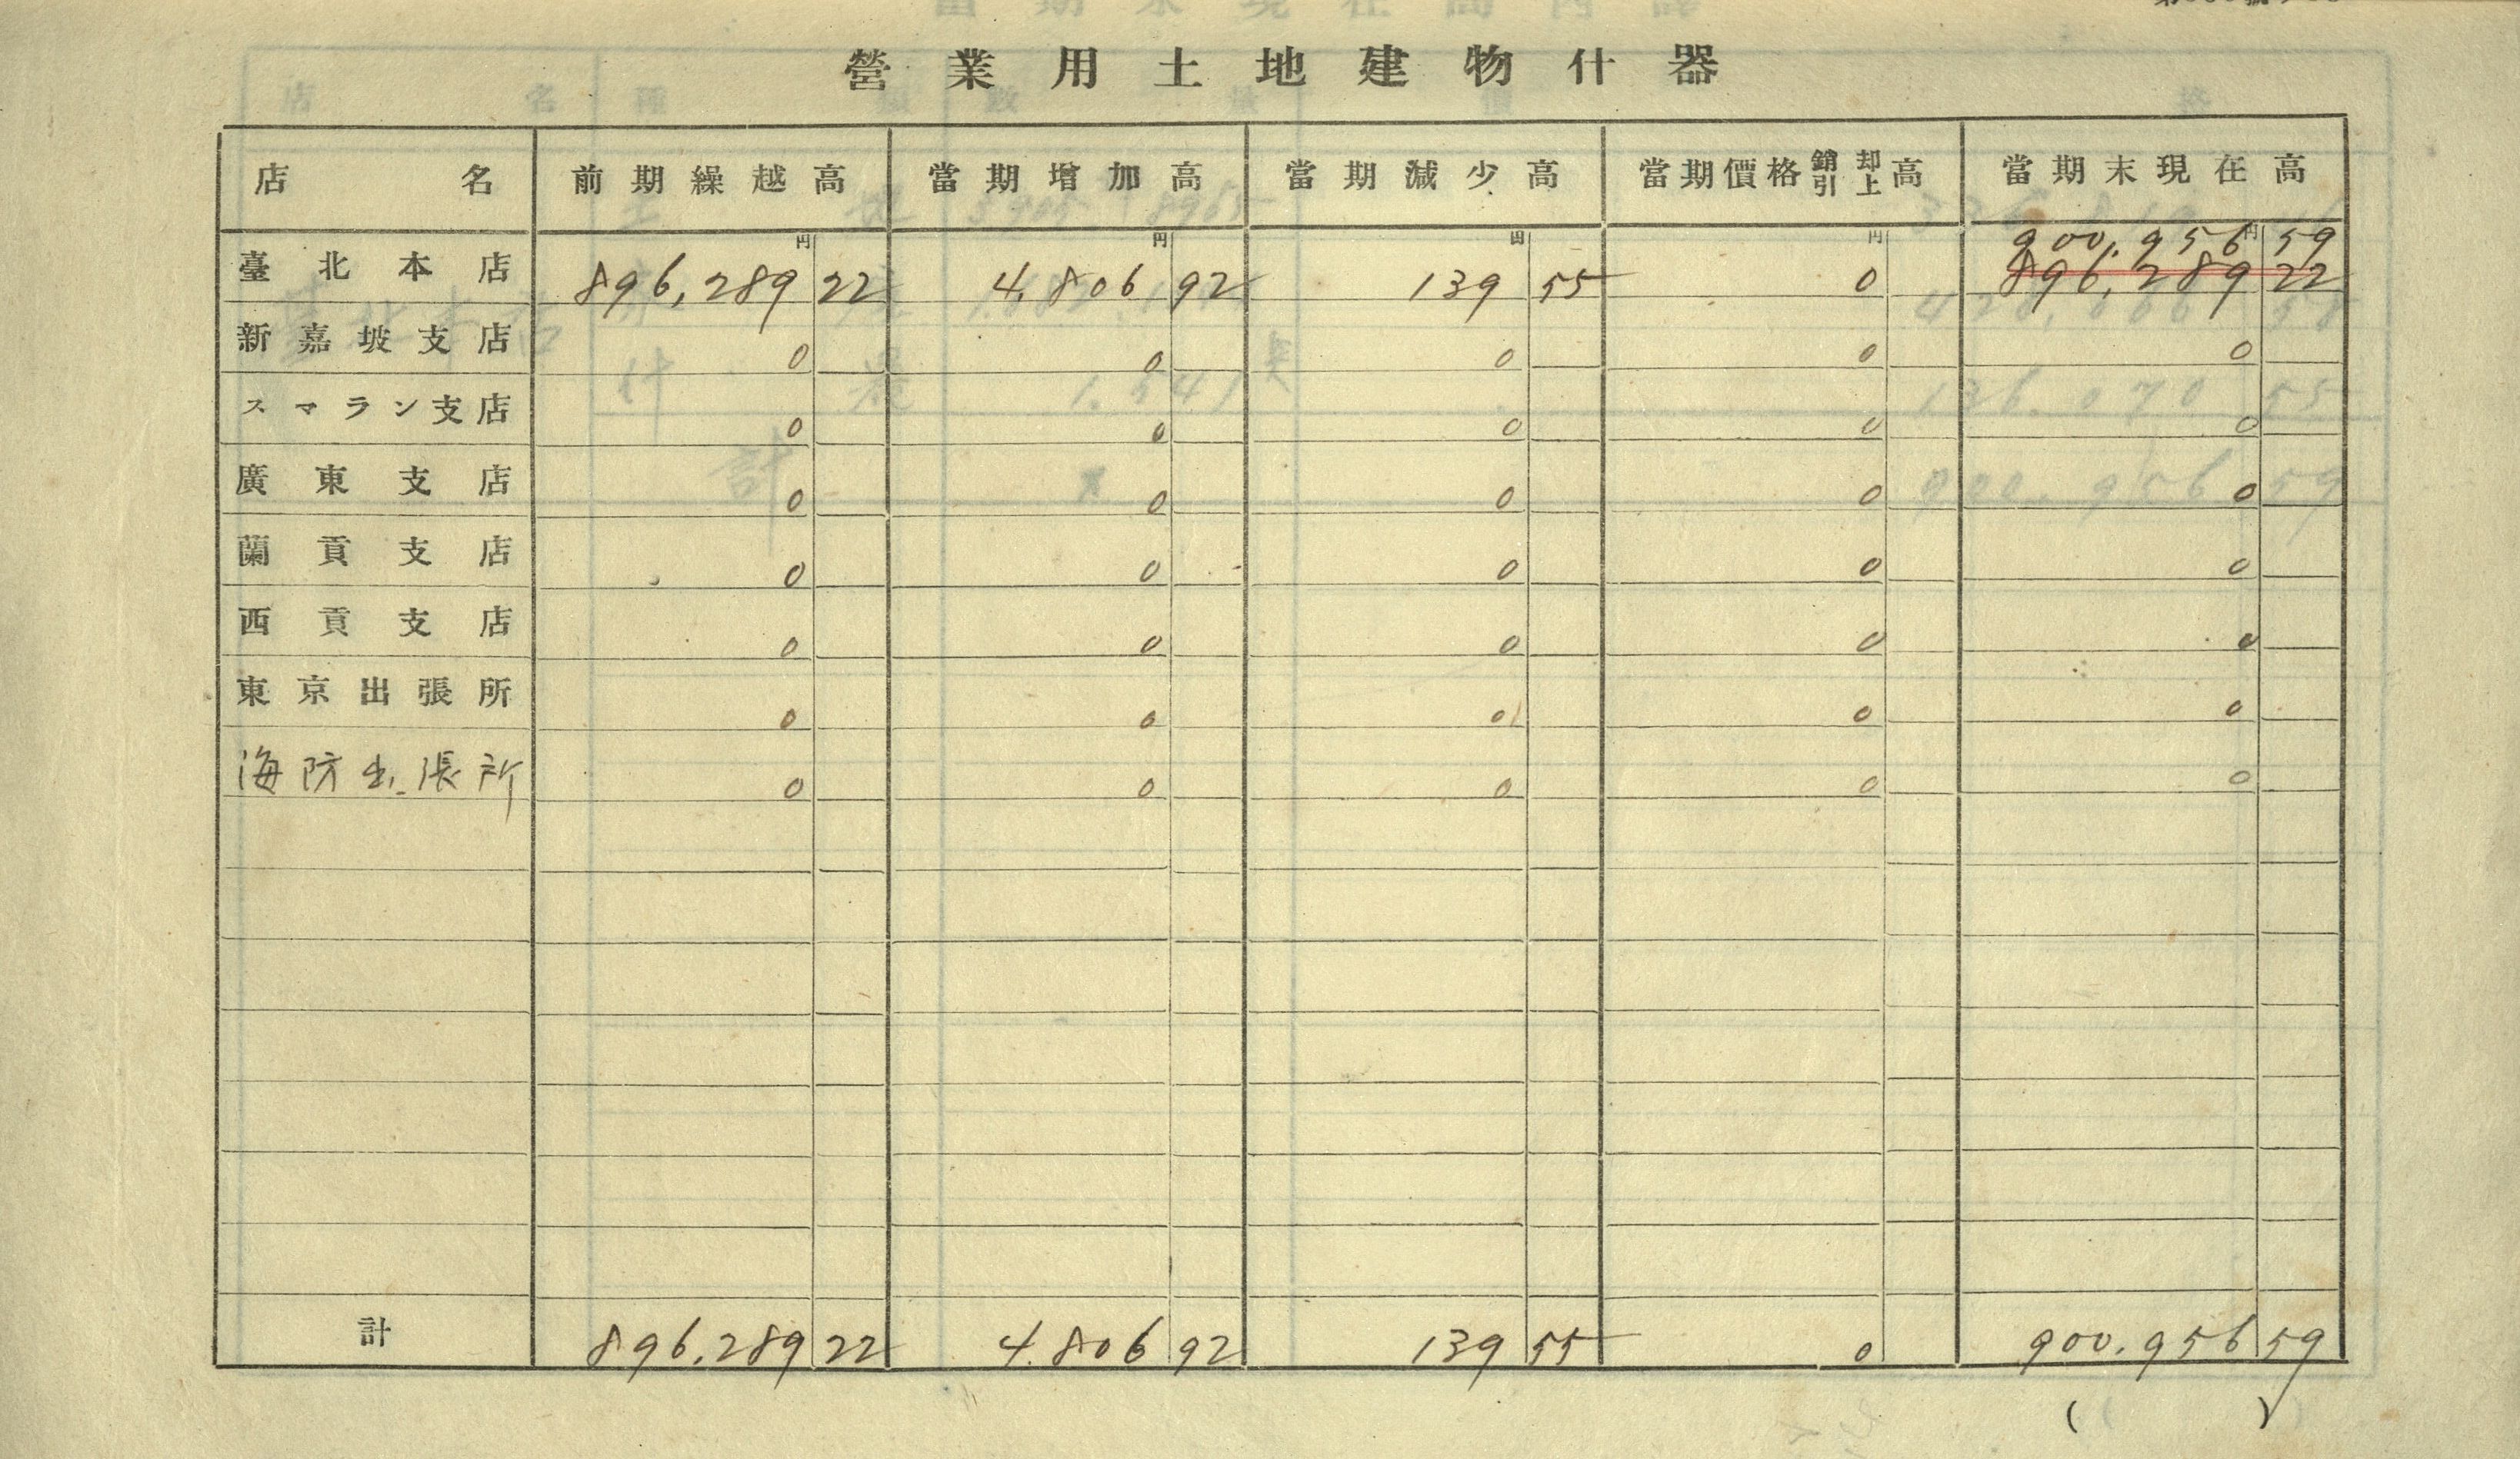 營業用土地建物什器
店名 前期繰越高 當期增加高 當期減少高 當期價格銷却引上高 當期末現在高
円 円 円 円 円
900,956 59
臺北本店 896,289 22 4,806 92 139 55 0 896,289 22
新嘉坡支店 0 0 0 0 0
スマラン支店 0 0 0 0 0
廣東支店 0 0 0 0 0
蘭貢支店 0 0 0 0 0
西貢支店 0 0 0 0 0
東京出張所 0 0 0 0 0
海防出張所 0 0 0 0 0
計 896,289 22 4,806 92 139 55 0 900,956 59
( )